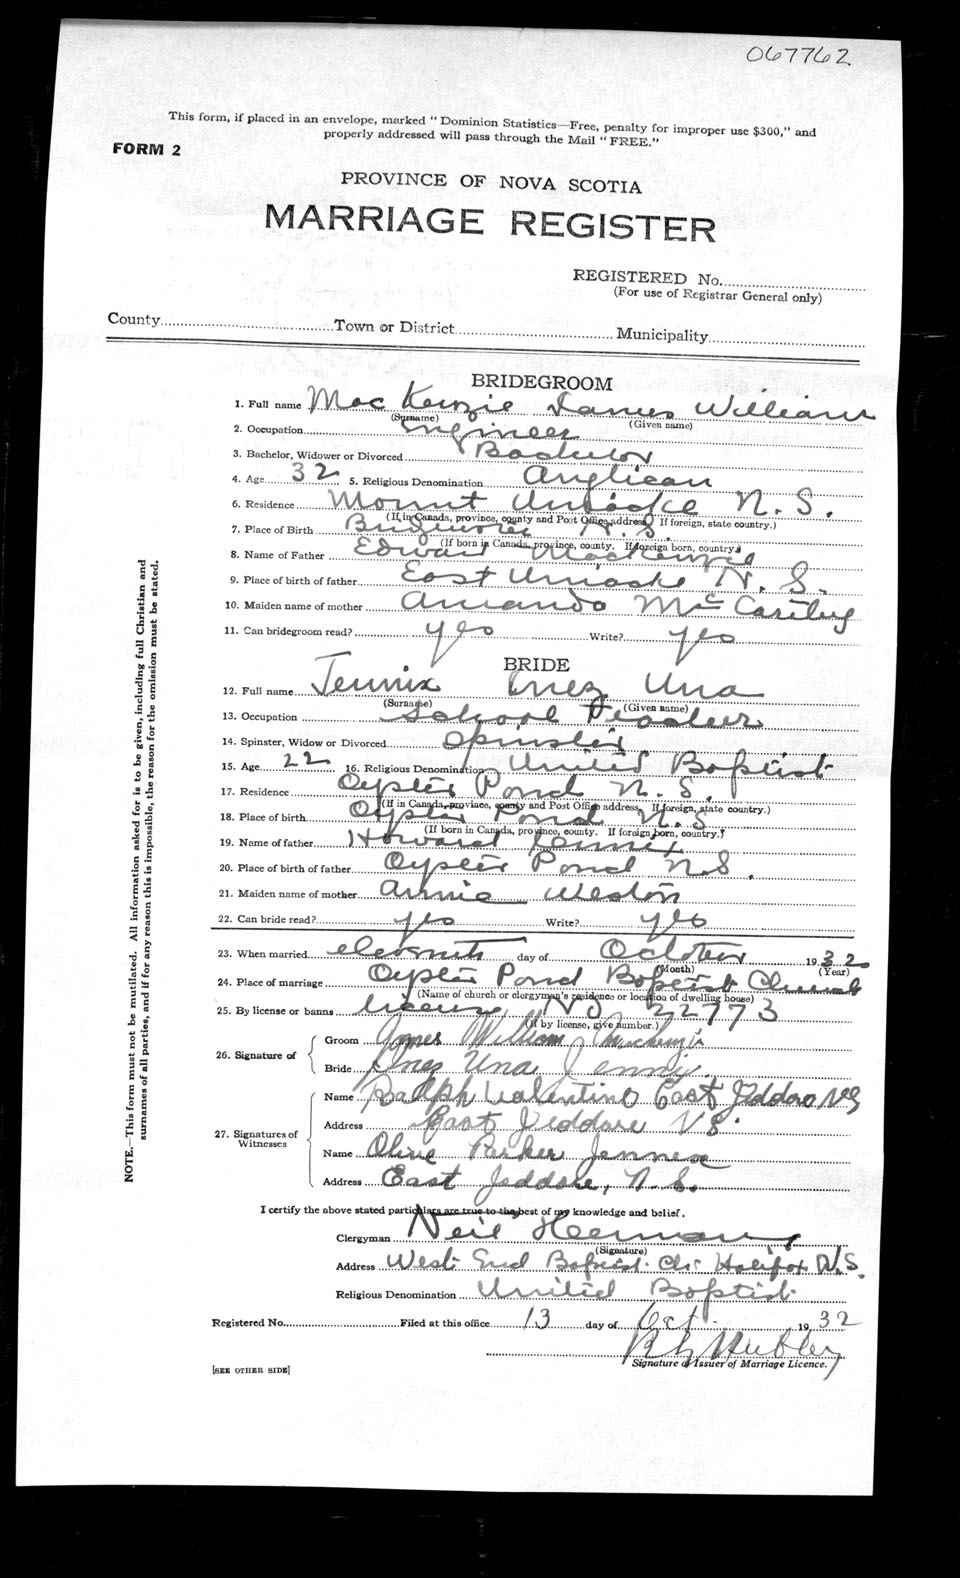 067762
This form, if placed in an envelope, marked "Dominion Statistics—Free, penalty for improper use $300," and
properly addressed will pass through the Mail "FREE."
FORM 2
PROVINCE OF NOVA SCOTIA
MARRIAGE REGISTER
REGISTERED No.
(For use of Registrar General only)
County Town or District Municipality
BRIDEGROOM
1. Full name MacKenzie James William
(Surname) (Given name)
2. Occupation Engineer
3. Bachelor, Widower or Divorced Bachelor
4. Age 32 5. Religious Denomination Anglican
6. Residence Mount Uniacke N. S.
(If in Canada, province, county and Post Office address. If foreign, state country.)
7. Place of Birth N. S.
(If born in Canada, province, county. If foreign born, country.)
8. Name of Father Edward MacKenzie
9. Place of birth of father East Uniacke N. S.
10. Maiden name of mother Amanda McCarthy
11. Can bridegroom read? yes Write? yes
BRIDE
12. Full name Jennix Inez Una
(Surname) (Given name)
13. Occupation School Teacher
14. Spinster, Widow or Divorced Spinster
15. Age 22 16. Religious Denomination United Baptist
17. Residence Oyster Pond N. S.
(If in Canada, province, county and Post Office address. If foreign, state country.)
18. Place of birth Oyster Pond N. S
(If born in Canada, province, county. If foreign born, country.)
19. Name of father Howard Jennix
20. Place of birth of father Oyster Pond N.S.
21. Maiden name of mother Annie Weston
22. Can bride read? yes Write? yes
23. When married eleventh day of October 1932
(Month) (Year)
24. Place of marriage Oyster Pond Baptist Church
(Name of church or clergyman's residence or location of dwelling house)
25. By license or banns license, No 22773
(If by license, give number.)
26. Signature of Groom James William Mackenzie
Bride Inez Una Jennix
27. Signatures of Witnesses
Name Ralph Valentine East Jeddore NS
Address East Jeddore NS.
Name Olive Parker Jennex
Address East Jeddore, N. S.
I certify the above stated particulars are true to the best of my knowledge and belief.
Clergyman Neil Herman
(Signature)
Address West End Baptist Ch. Halifax N.S.
Religious Denomination United Baptist
Registered No. Filed at this office 13 day of Oct. 1932
Hubley
Signature of Issuer of Marriage Licence.
[SEE OTHER SIDE]
NOTE.—This form must not be mutilated. All information asked for is to be given, including full Christian and
surnames of all parties, and if for any reason this is impossible, the reason for the omission must be stated.